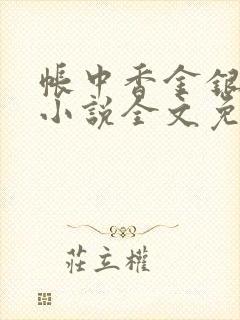 帳中香金銀
小說全文免
莊立權